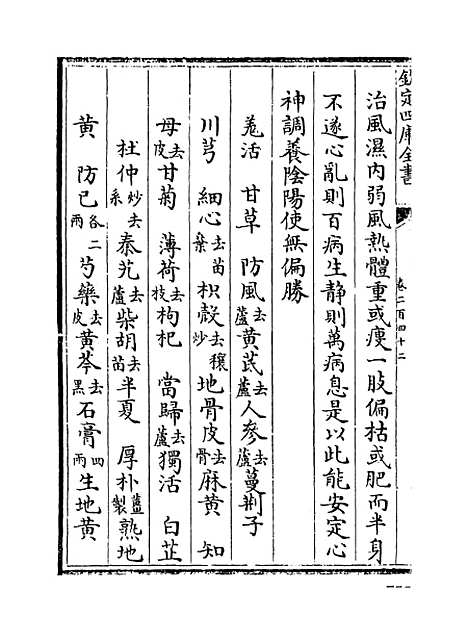 欽定四庫全書
卷二百四十二
治風濕内弱風熱體重或瘦一肢偏枯或肥而半身
不遂心亂則百病生静則萬病息是以此能安定心
神調養陰陽使無偏勝
羗活　甘草　防風去蘆黄芪去蘆人參去蘆蔓荆子
川芎　細心去苗葉枳殻去穰炒地骨皮去骨麻黄　知
母去皮甘菊　薄荷去枝枸杞　當歸去蘆獨活　白芷
杜仲炒去系秦艽去蘆柴胡去苗半夏　厚朴薑製熟地
黄　防已各二兩芍藥去皮黄芩去黑石膏四兩生地黄